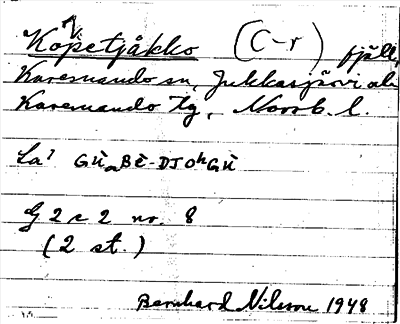 Kopetjåkko (C-r) fjäll,
Karesuando sn, Jukkasjärvi ol.
Karesuando tg, Norrb. l.
La¹
G 2 c 2 nr. 8
(2 st.)
Bernhard Nilsson 1948